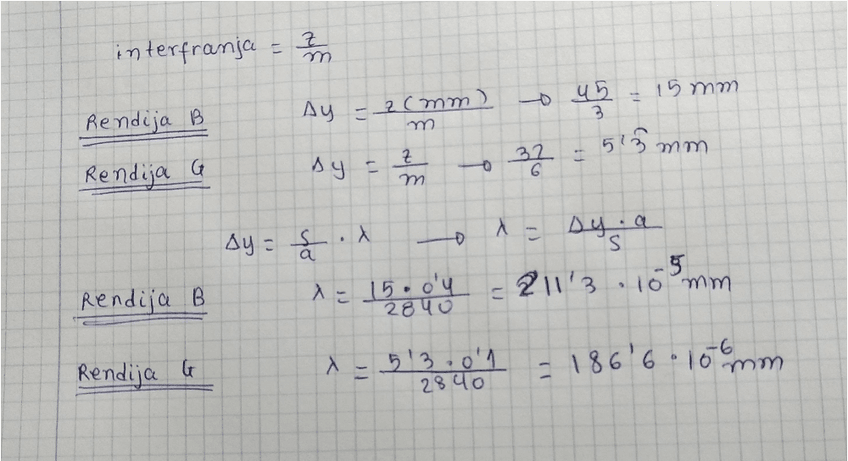 interfranja = z/m
Rendija B Δy = z(mm)/m → 45/3 = 15 mm
Rendija G Δy = z/m → 32/6 = 5'3̂ mm
Δy = s/a · λ → λ = Δy · a/s
Rendija B λ = 15 · 0'4/2840 = 211'3 · 10⁻⁵ mm
Rendija G λ = 5'3 · 0'1/2840 = 186'6 · 10⁻⁶ mm